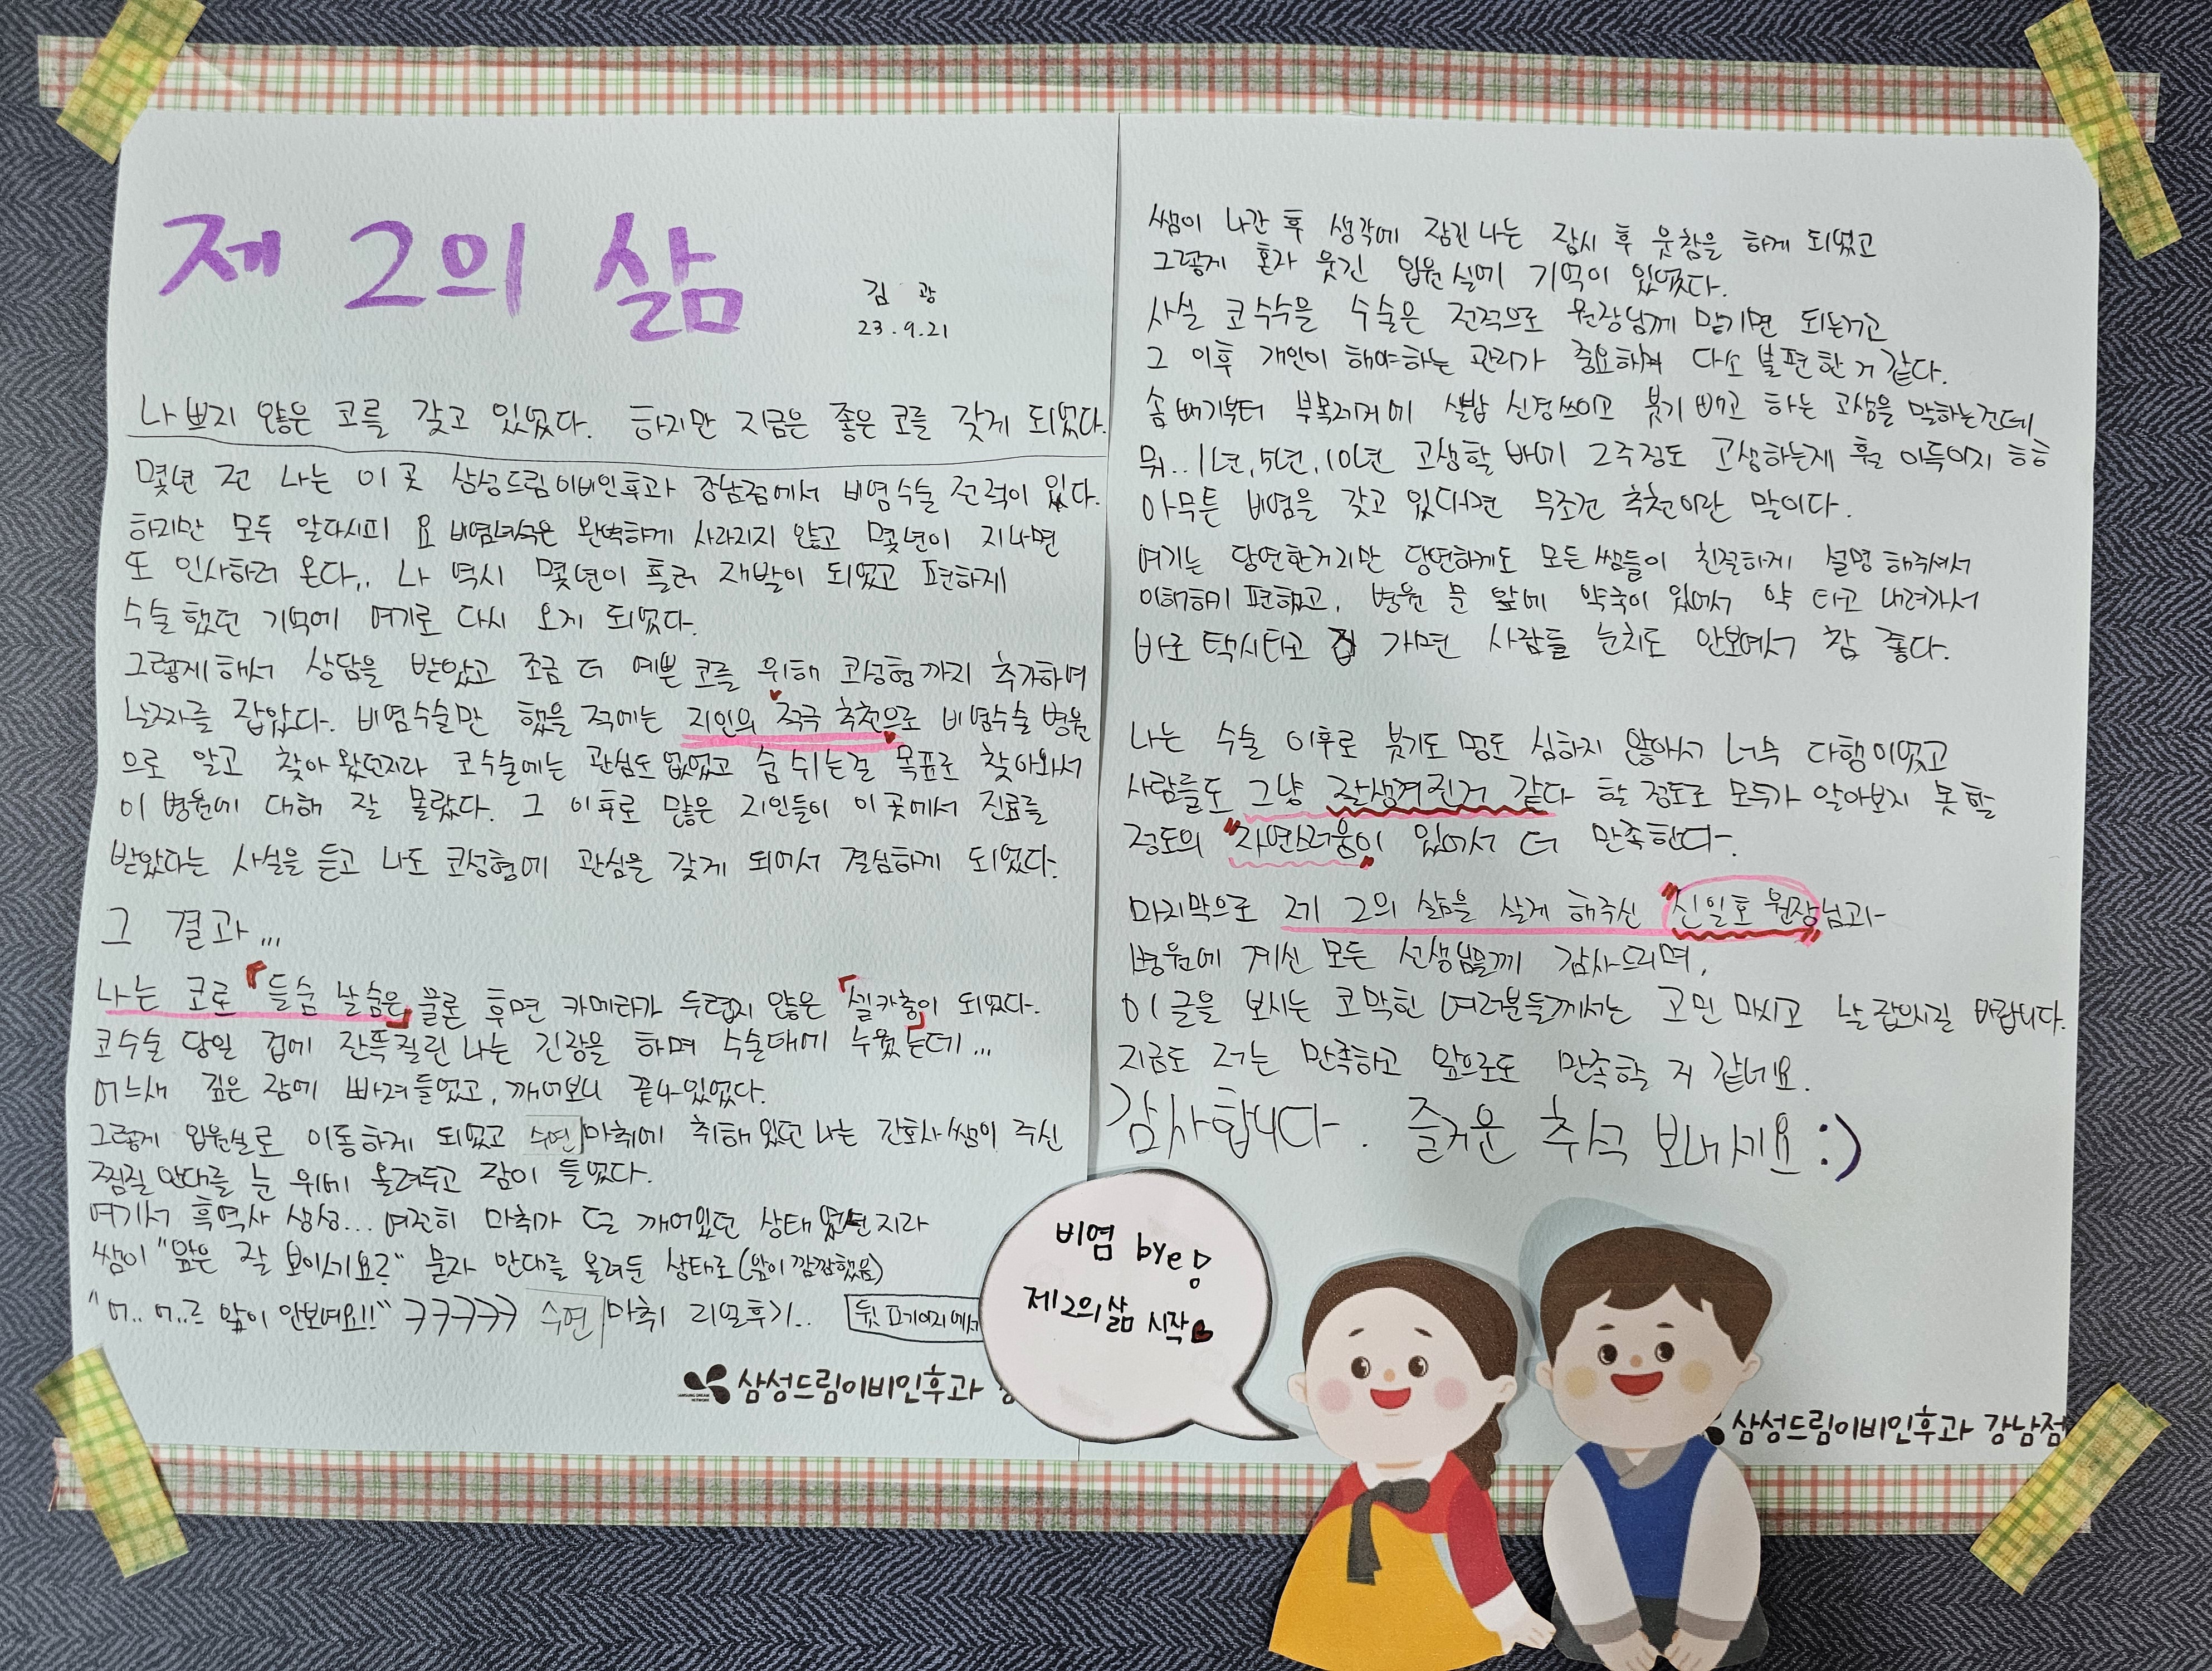 제 2의 삶
김 광
23.9.21
나쁘지 않은 코를 갖고 있었다. 하지만 지금은 좋은 코를 갖게 되었다.
몇년 전 나는 이 곳 삼성드림이비인후과 강남점에서 비염수술 전력이 있다.
하지만 모두 알다시피 요 비염녀석은 완벽하게 사라지지 않고 몇년이 지나면
또 인사하러 온다,, 나 역시 몇년이 흘러 재발이 되었고 편하게
수술했던 기억에 여기로 다시 오게 되었다.
그렇게해서 상담을 받았고 조금 더 예쁜 코를 위해 코성형까지 추가하여
날짜를 잡았다. 비염수술만 했을 적에는 지인의 적극 추천으로 비염수술 병원
으로 알고 찾아 왔던지라 코수술에는 관심도 없었고 숨 쉬는걸 목표로 찾아와서
이 병원에 대해 잘 몰랐다. 그 이후로 많은 지인들이 이 곳에서 진료를
받았다는 사실을 듣고 나도 코성형에 관심을 갖게 되어서 결심하게 되었다.
그 결과...
나는 코로 「들숨 날숨은」 물론 후면 카메라가 두렵지 않은 「셀카충이」 되었다.
코수술 당일 겁에 잔뜩질린 나는 긴장을 하며 수술대에 누웠는데...
어느새 깊은 잠에 빠져들었고, 깨어보니 끝나있었다.
그렇게 입원실로 이동하게 되었고 수면마취에 취해있던 나는 간호사쌤이 주신
찜질안대를 눈 위에 올려두고 잠이 들었다.
여기서 흑역사 생성... 여전히 마취가 덜 깨어있던 상태였던지라
쌤이 "앞은 잘 보이시지요?" 묻자 안대를 올려둔 상태로 (앞이 깜깜했음)
"어.. 어..으 앞이 안보여요!!" ㅋㅋㅋㅋㅋ 수면마취 리얼후기..
뒷 페이지에서
삼성드림이비인후과
쌤이 나간 후 생각에 잠긴 나는 잠시 후 웃참을 하게 되었고
그렇게 혼자 웃긴 입원실에 기억이 있었다.
사실 코수술을 수술은 전적으로 원장님께 맡기면 되는거고
그 이후 개인이 해야하는 관리가 중요하며 다소 불편한 거 같다.
솜 빼기부터 부목제거에 실밥 신경쓰이고 붓기 빼고 하는 고생을 말하는건데
뭐.. 1년, 5년, 10년 고생할 바에 2주정도 고생하는게 훨 이득이지 ㅎㅎ
아무튼 비염을 갖고 있다면 무조건 추천이란 말이다.
여기는 당연한거지만 당연하게도 모든 쌤들이 친절하게 설명 해주셔서
이해하기 편했고, 병원 문 앞에 약국이 있어서 약 타고 내려가서
바로 택시타고 집 가면 사람들 눈치도 안보여서 참 좋다.
나는 수술 이후로 붓기도 멍도 심하지 않아서 너무 다행이었고
사람들도 그냥 잘생겨진거 같다 할 정도로 모두가 알아보지 못할
정도의 "자연스러움이" 있어서 더 만족한다.
마지막으로 제 2의 삶을 살게 해주신 "신일호 원장"님과
병원에 계신 모든 선생님들께 감사드리며,
이 글을 보시는 코막힌 여러분들께서는 고민 마시고 날 잡으시길 바랍니다.
지금도 저는 만족하고 앞으로도 만족할 거 같네요.
감사합니다. 즐거운 추석 보내세요 :)
비염 bye!
제2의 삶 시작♥
삼성드림이비인후과 강남점